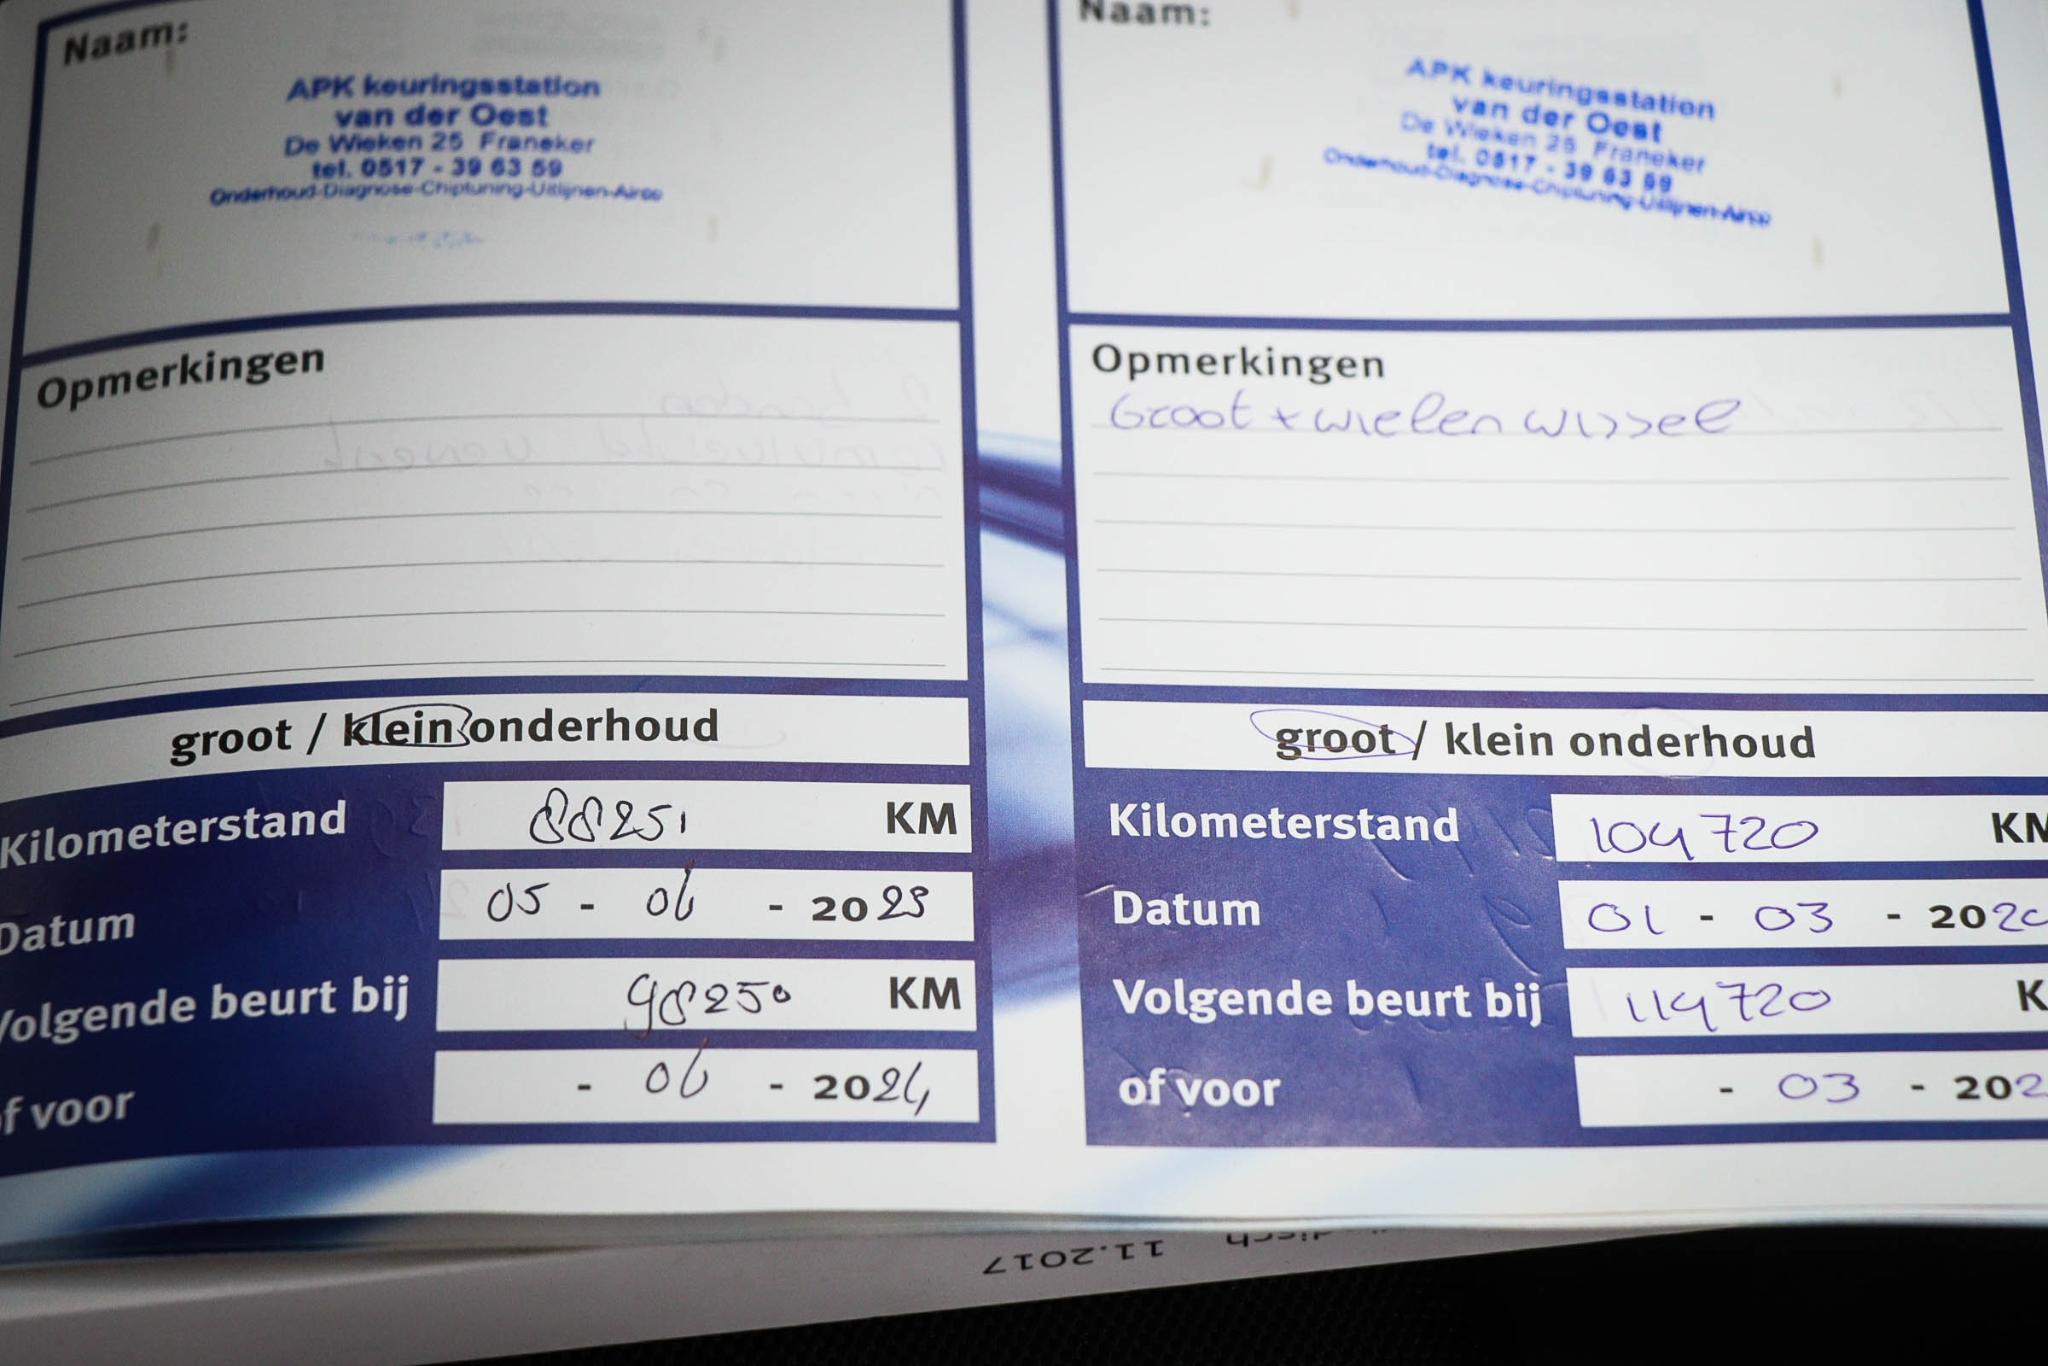 Naam:
APK keuringsstation
van der Oest
De Wieken 25 Franeker
tel. 0517 - 39 63 59
Onderhoud-Diagnose-Chiptuning-Uitlijnen-Airco
Opmerkingen
groot / klein onderhoud
Kilometerstand 88251 KM
Datum 05 - 06 - 2023
Volgende beurt bij 98250 KM
of voor - 06 - 2024
Naam:
APK keuringsstation
van der Oest
De Wieken 25 Franeker
tel. 0517 - 39 63 59
Onderhoud-Diagnose-Chiptuning-Uitlijnen-Airco
Opmerkingen
Groot + wielen wissel
groot / klein onderhoud
Kilometerstand 104720 KM
Datum 01 - 03 - 202
Volgende beurt bij 114720 K
of voor - 03 - 202
11.2017